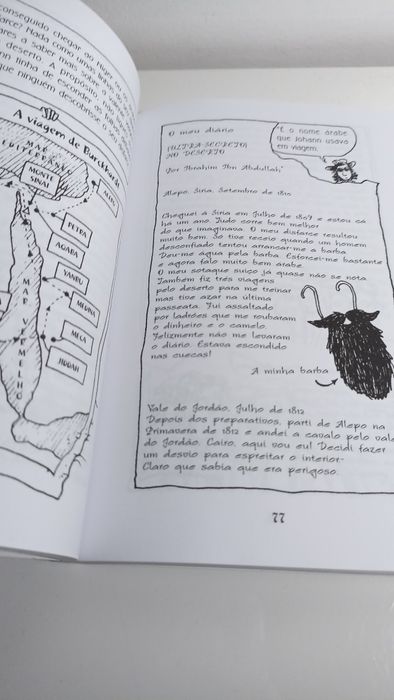 conseguido chegar ao Níger
Nada como umas linhas do
a saber mais sobre a
deserto. A propósito
tinha de esconder o
que ninguém descobrisse o
A viagem de Burckhardt
MAR
MEDITERRÂNEO
MONTE
SINAI
PETRA
AQABA
YANBU
MEDINA
MECA
JIDDAH
MAR VERMELHO
O meu diário
(ULTRA-SECRETO)
NO DESERTO
Por Ibrahim Ibn Abdullah*
*É o nome árabe
que Johann usava
em viagem.
Alepo, Síria, Setembro de 1810
Cheguei à Síria em Julho de 1809 e estou cá
há um ano. Tudo corre bem melhor
do que imaginava. O meu disfarce resultou
muito bem. Só tive receio quando um homem
desconfiado tentou arrancar-me a barba.
Deu-me água pela barba. Esforcei-me bastante
e agora falo muito bem árabe.
O meu sotaque suíço já quase não se nota.
Também fiz três viagens
pelo deserto para me treinar
mas tive azar na última
passeata. Fui assaltado
por ladrões que me roubaram
o dinheiro e o camelo.
Felizmente não me levaram
o diário. Estava escondido
nas cuecas!
A minha barba
Vale do Jordão, Julho de 1812
Depois dos preparativos, parti de Alepo na
Primavera de 1812 e andei a cavalo pelo vale
do Jordão. Cairo, aqui vou eu! Decidi fazer
um desvio para espreitar o interior.
Claro que sabia que era perigoso.
77